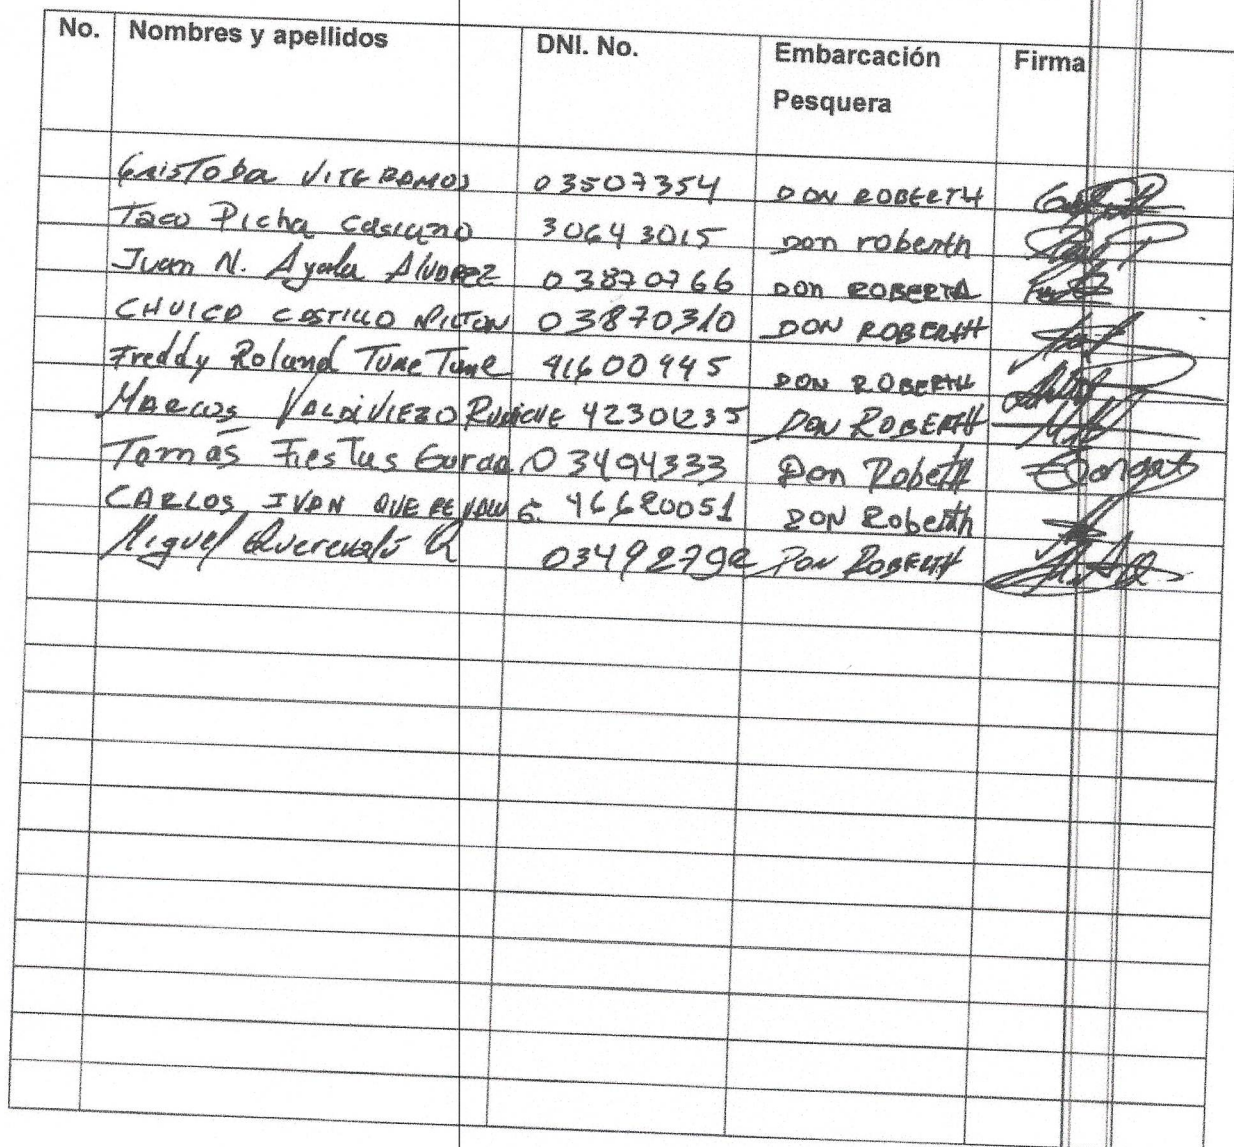 No. Nombres y apellidos DNI. No. Embarcación Pesquera Firma
CrisToba ViTE RAMOS 03507354 DON ROBERTH
Taco Picha Casiano 30643015 Don roberth
Juan N. Ayala Alvarez 03870766 DON ROBERTH
CHUICA CASTILLO MILTON 03870310 DON ROBERTH
Freddy Roland Tume Tume 41600945 DON ROBERTH
MARCOS VALDIVIEZO 42301235 DON ROBERTH
Tomás FiesTas 03494333 Don Robeth
CARLOS IVAN G. 46620051 DON Roberth
Miguel Querevalú 03492792 DON ROBERTH